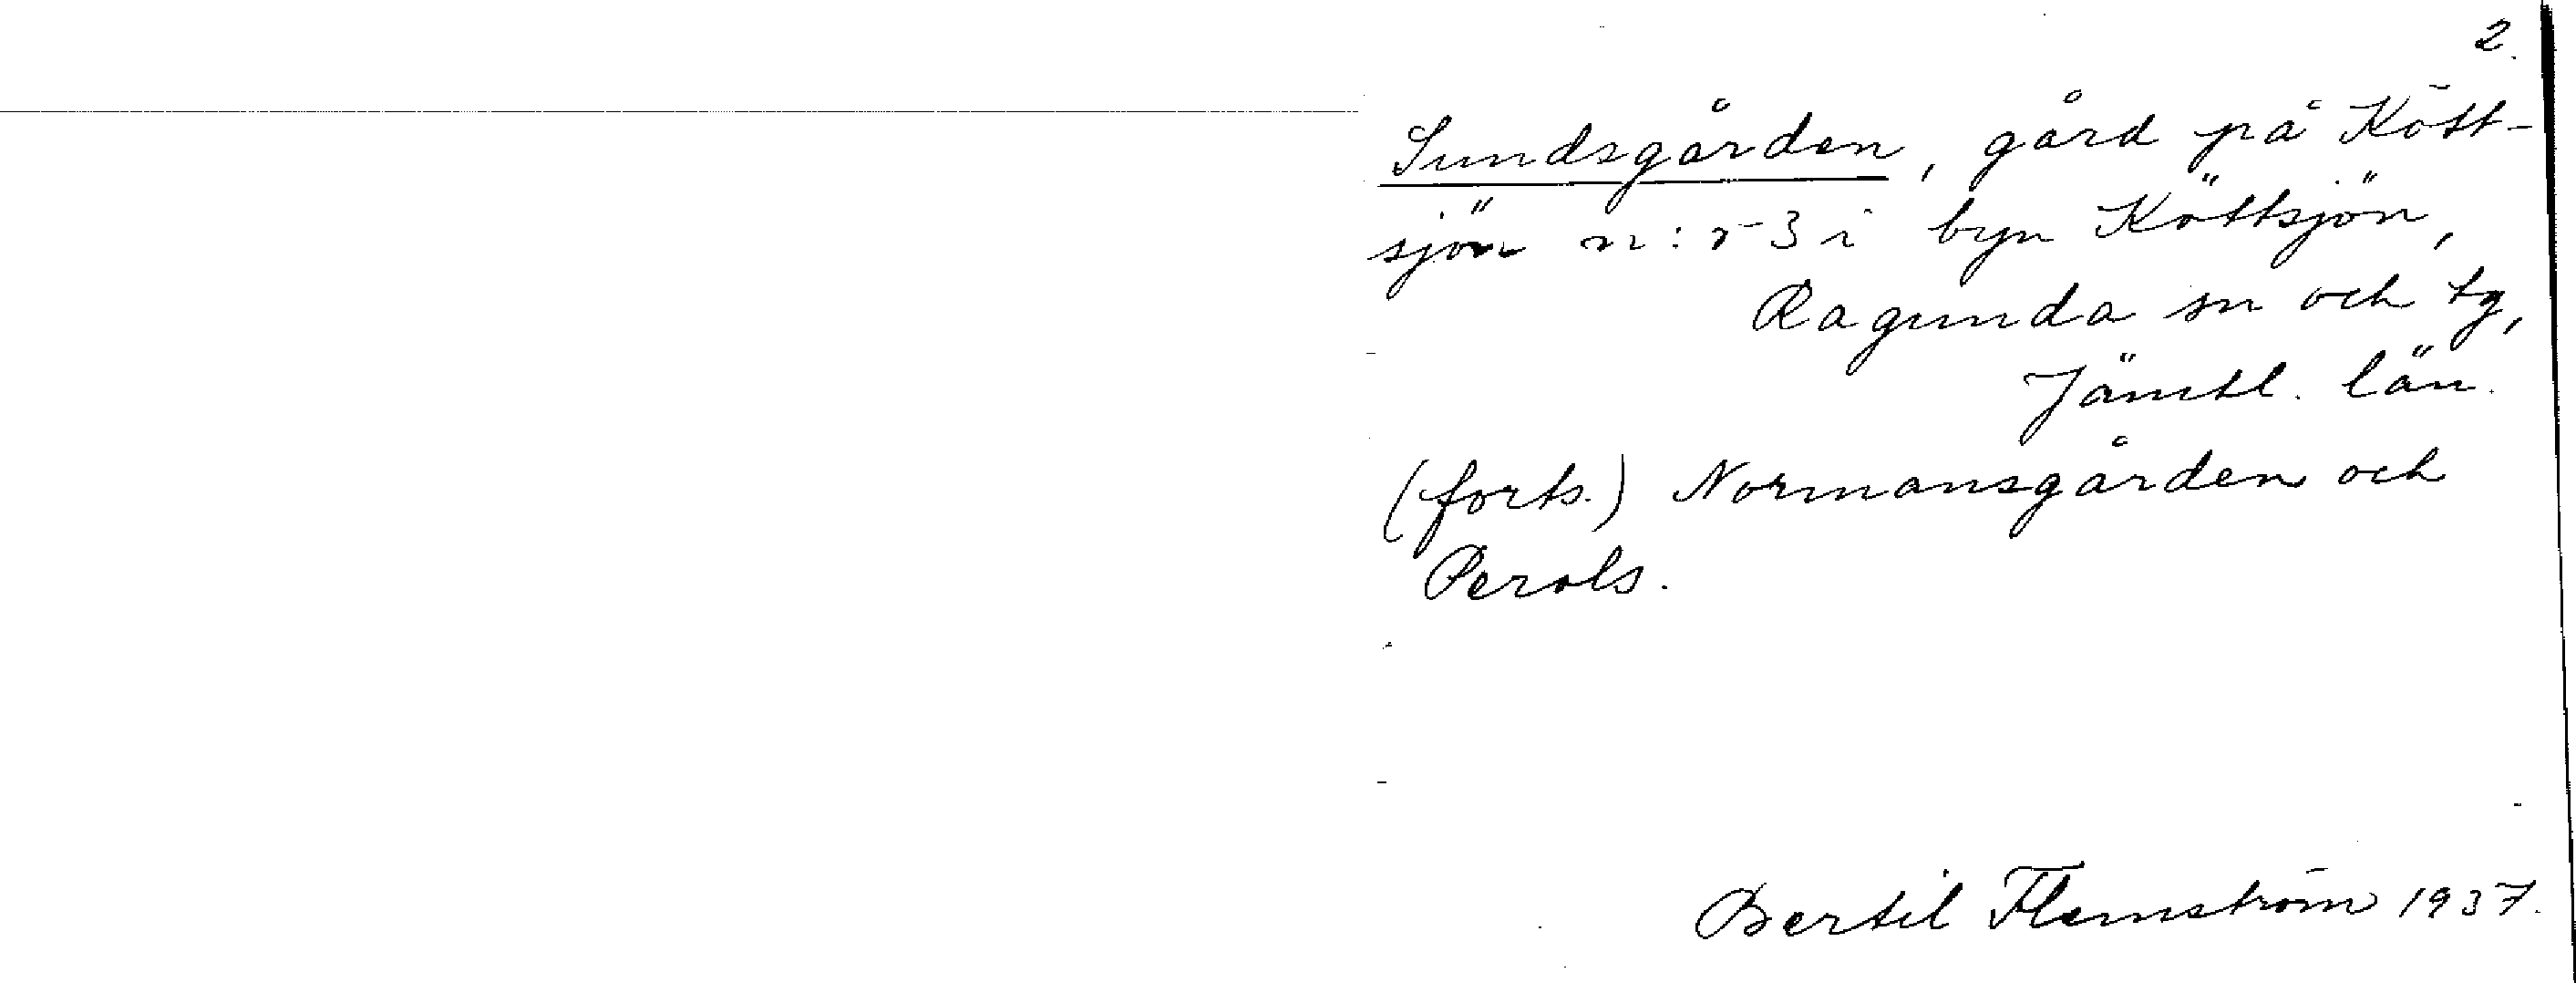 2.
Sundsgården, gård på Kött-
sjön n:r 3 i byn Köttsjön,
Ragunda sn och tg,
Jämtl. län.
(forts.) Normansgården och
Perols.
Bertil Flemström 1937.